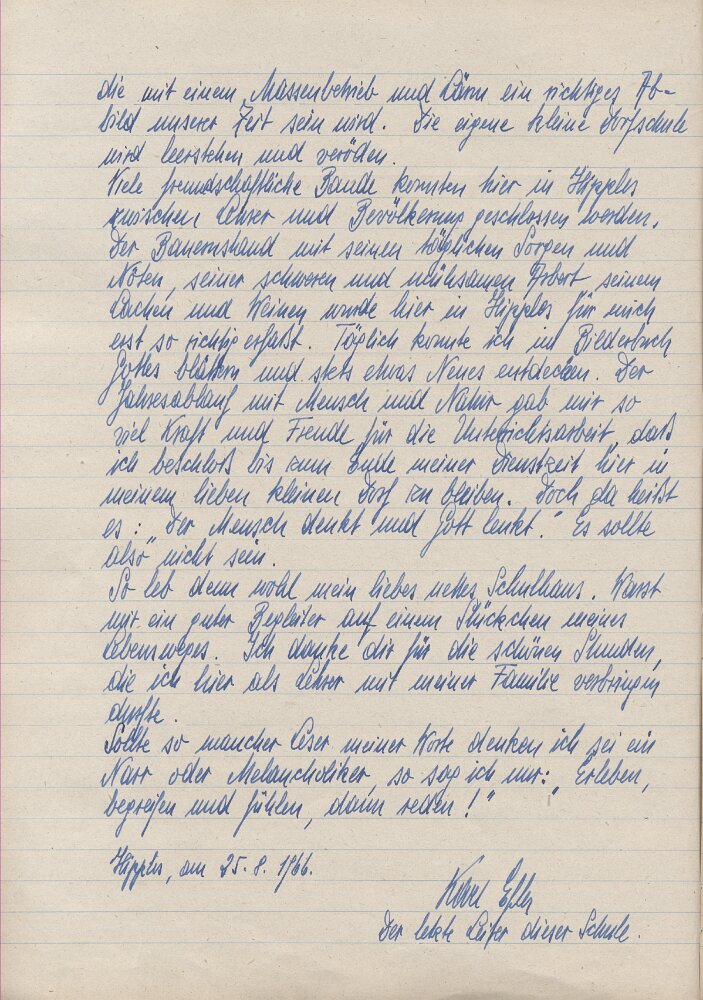 die mit einem Massenbetrieb und Lärm ein richtiges Ab-
bild unserer Zeit sein wird. Die eigene kleine Dorfschule
wird leerstehen und veröden.
Viele freundschaftliche Bande konnten hier in Hipples
zwischen Lehrer und Bevölkerung geschlossen werden.
Der Bauernstand mit seinen täglichen Sorgen und
Nöten, seiner schweren und mühsamen Arbeit, seinem
Lachen und Weinen wurde hier in Hipples für mich
erst so richtig erfaßt. Täglich konnte ich im Bilderbuch
Gottes blättern und stets etwas Neues entdecken. Der
Jahresablauf mit Mensch und Natur gab mir so
viel Kraft und Freude für die Unterrichtsarbeit, daß
ich beschloß bis zum Ende meiner Dienstzeit hier in
meinem lieben kleinen Dorf zu bleiben. Doch da heißt
es: „Der Mensch denkt und Gott lenkt." Es sollte
also nicht sein.
So leb denn wohl mein liebes nettes Schulhaus. Warst
mir ein guter Begleiter auf einem Stückchen meines
Lebensweges. Ich danke dir für die schönen Stunden,
die ich hier als Lehrer mit meiner Familie verbringen
durfte.
Sollte so mancher Leser meiner Worte denken ich sei ein
Narr oder Melancholiker, so sag ich nur: „Erleben,
begreifen und fühlen, dann reden!"
Hipples, am 25. 8. 1966.
Karl
Der letzte Leiter dieser Schule.